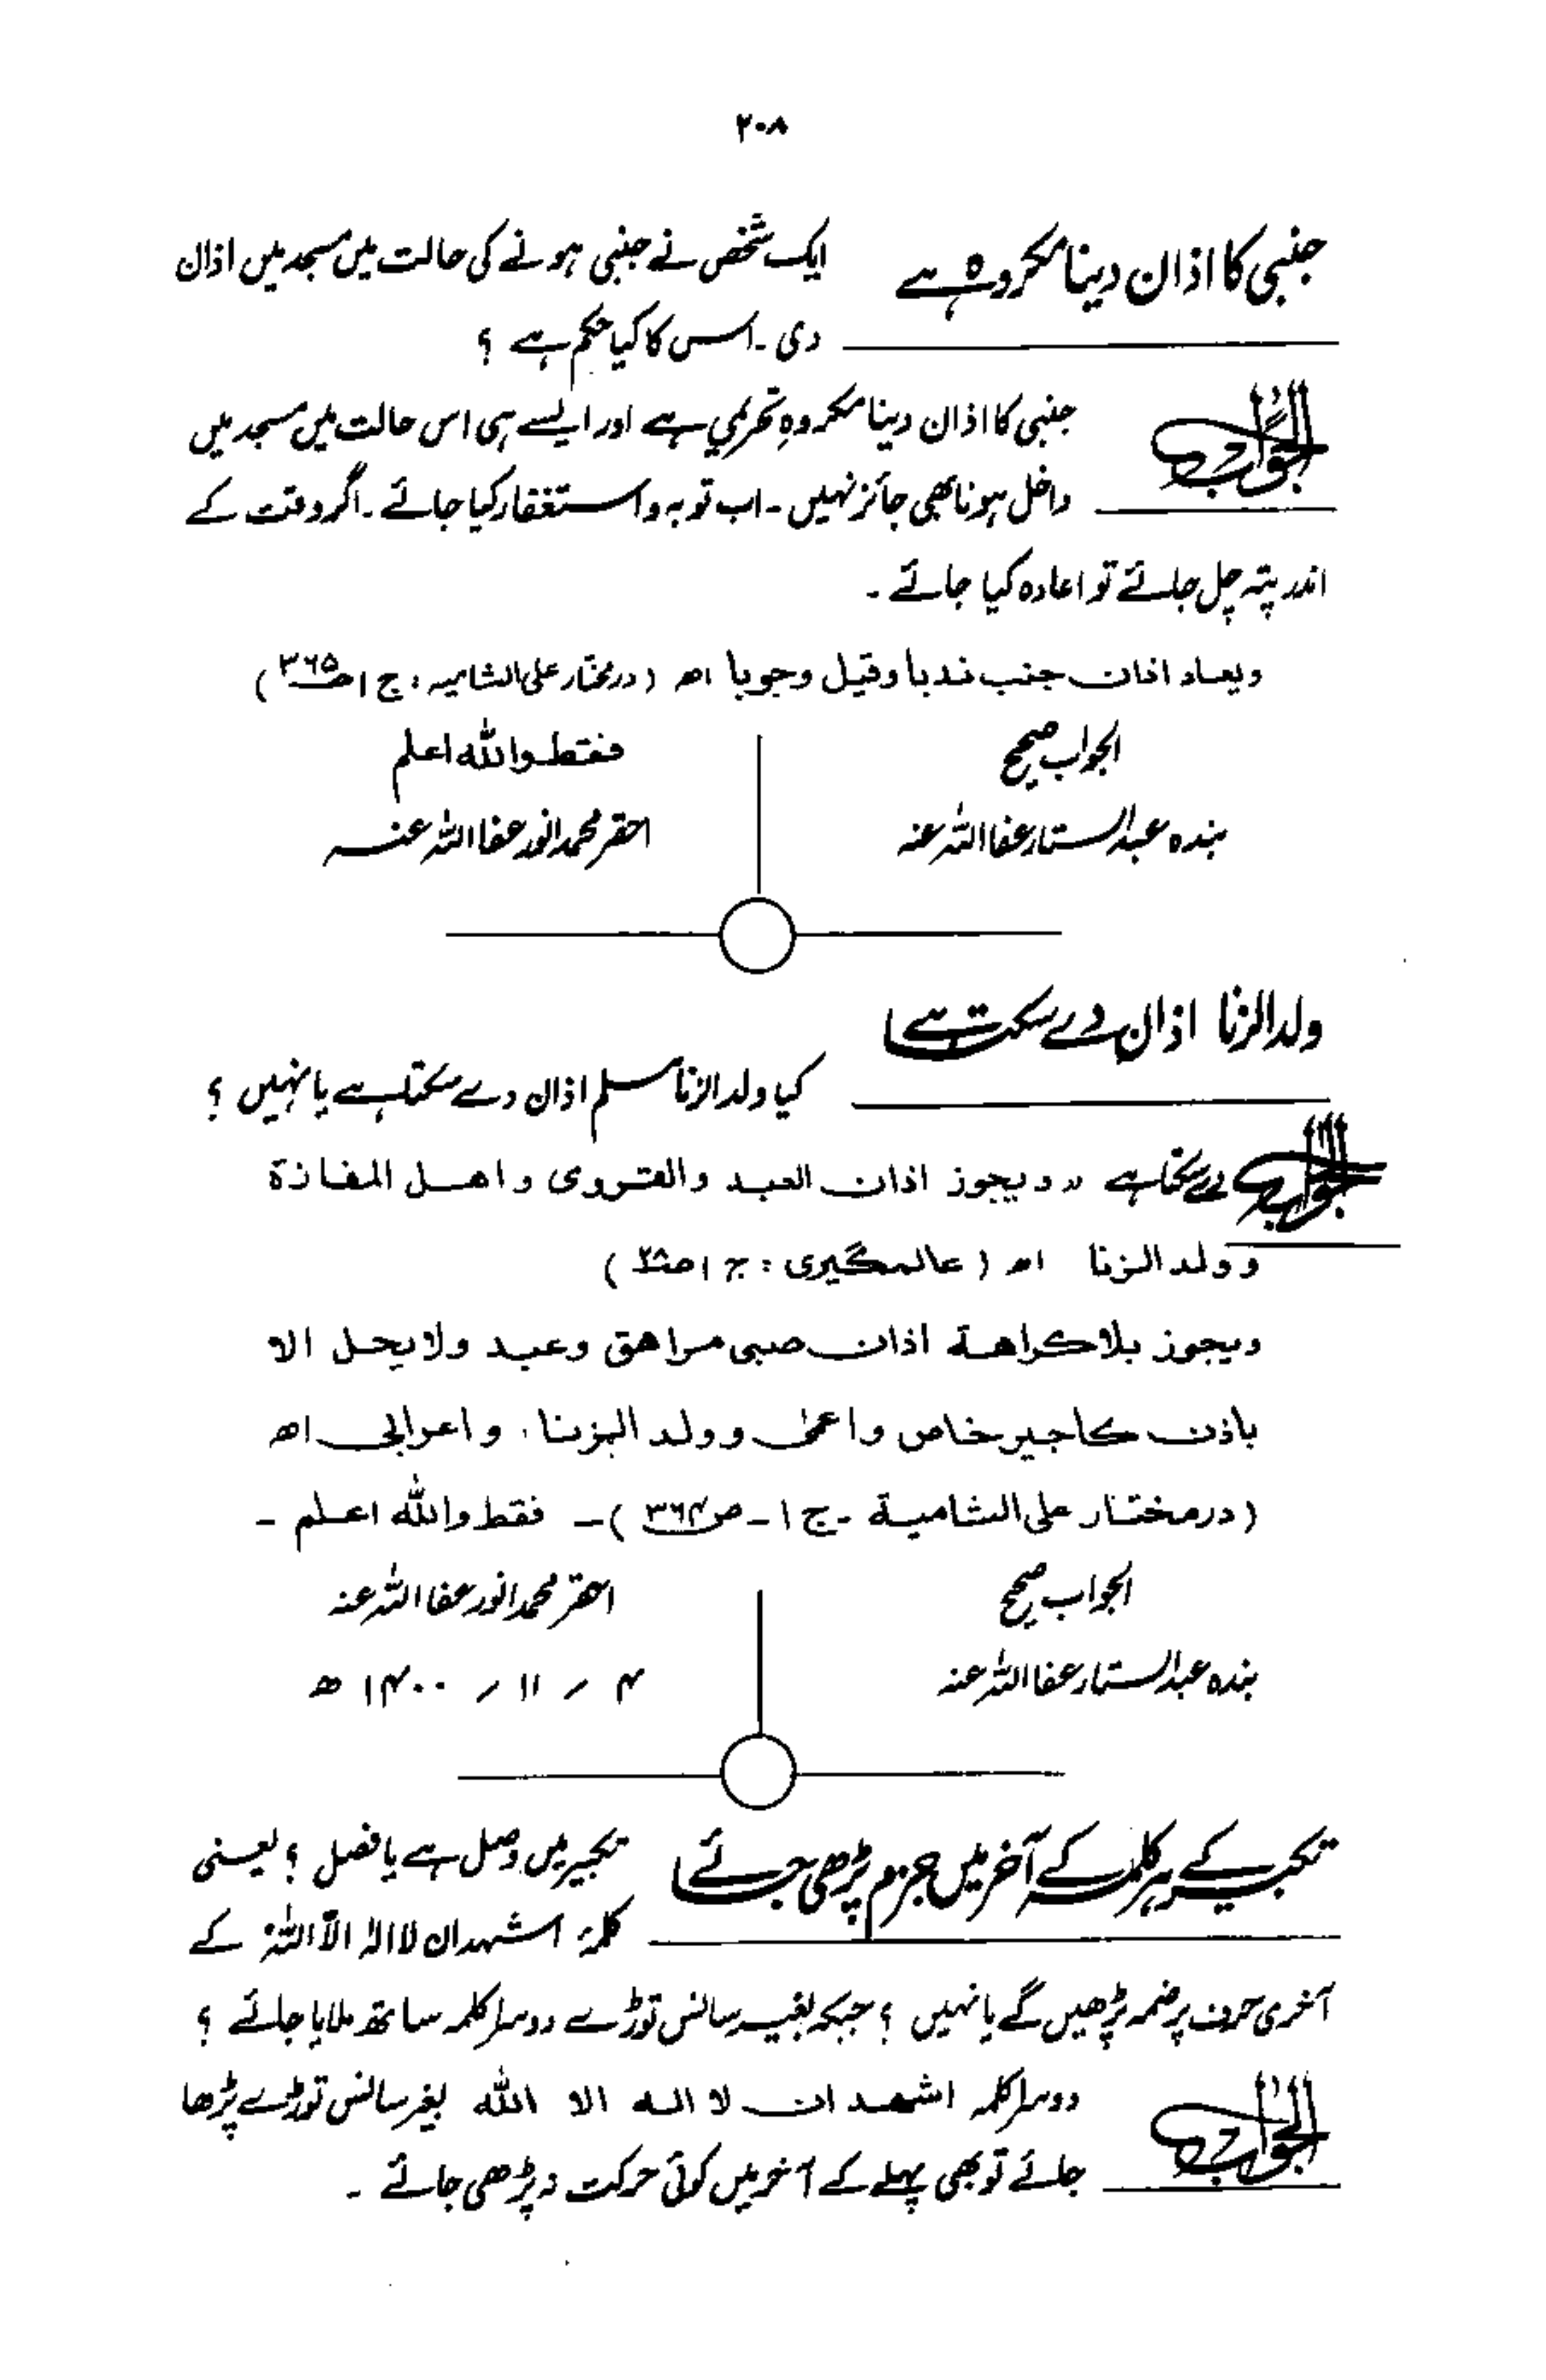 ۲۰۸
جنبی کا اذان دینا مکروہ ہے
ایک شخص نے جنبی ہونے کی حالت میں مسجد میں اذان
دی ۔ اس کا کیا حکم ہے ؟
الجواب
جنبی کا اذان دینا مکروہِ تحریمی ہے اور ایسے ہی اس حالت میں مسجد میں
داخل ہونا بھی جائز نہیں ۔ اب توبہ و استغفار کیا جائے ۔ اگر وقت کے
اندر پتہ چل جائے تو اعادہ کیا جائے ۔
ويعاد اذان جنب ندبا وقيل وجوبا اھ (درمختار علی الشامیہ : ج ۱ ص ۳۶۵)
الجواب صحیح
فقط واللہ اعلم
بندہ عبدالستار عفا اللہ عنہ
احقر محمد انور عفا اللہ عنہ
ولد الزنا اذان دے سکتا ہے
کیا ولد الزنا مسلم اذان دے سکتا ہے یا نہیں ؟
الجواب
دے سکتا ہے " ويجوز اذان العبد والقروى واهل المفازة
وولد الزنا اھ ( عالمگیری : ج ۱ ص )
ويجوز بلاكراهة اذان صبى مراهق وعبد ولا يحل الا
باذن كاجير خاص واعمى وولد الزنا، واعرابى اھ
(درمختار على الشامية ۔ ج ۱ ۔ ص ۳۶۴) ۔ فقط واللہ اعلم ۔
الجواب صحیح
احقر محمد انور عفا اللہ عنہ
بندہ عبدالستار عفا اللہ عنہ
۴ / ۱۱ / ۱۴۰۰ ھ
تکبیر کے ہر کلمہ کے آخر میں جزم پڑھی جائے
تکبیر میں وصل ہے یا فصل ؟ یعنی
کلمۂ اشہد ان لا الہ الّا اللہُ کے
آخری حرف پر ضمہ پڑھیں گے یا نہیں ؟ جبکہ بغیر سانس توڑے دوسرا کلمہ ساتھ ملایا جائے ؟
الجواب
دوسرا کلمہ اشهد ان لا اله الا الله بغیر سانس توڑے پڑھا
جائے تو بھی پہلے کے آخر میں کوئی حرکت نہ پڑھی جائے ۔